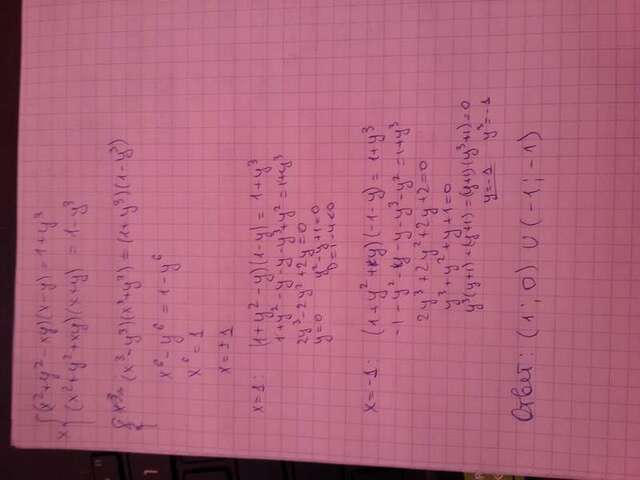 { (x²+y²-xy)(x-y) = 1+y³
x { (x²+y²+xy)(x+y) = 1-y³
(x³-y³)(x³+y³) = (1+y³)(1-y³)
x⁶-y⁶ = 1-y⁶
x⁶ = 1
x = ±1
x=1: (1+y²-y)(1-y) = 1+y³
1+y²-y-y-y³+y² = 1+y³
2y³-2y²+2y=0
y=0 y²-y+1=0
D=1-4<0
x=-1: (1+y²+y)(-1-y) = 1+y³
-1-y²-y-y-y³-y² = 1+y³
2y³+2y²+2y+2=0
y³+y²+y+1=0
y³(y+1)+(y+1)=(y+1)(y³+1)=0
y=-1 y³=-1
Ответ: (1;0) ∪ (-1;-1)